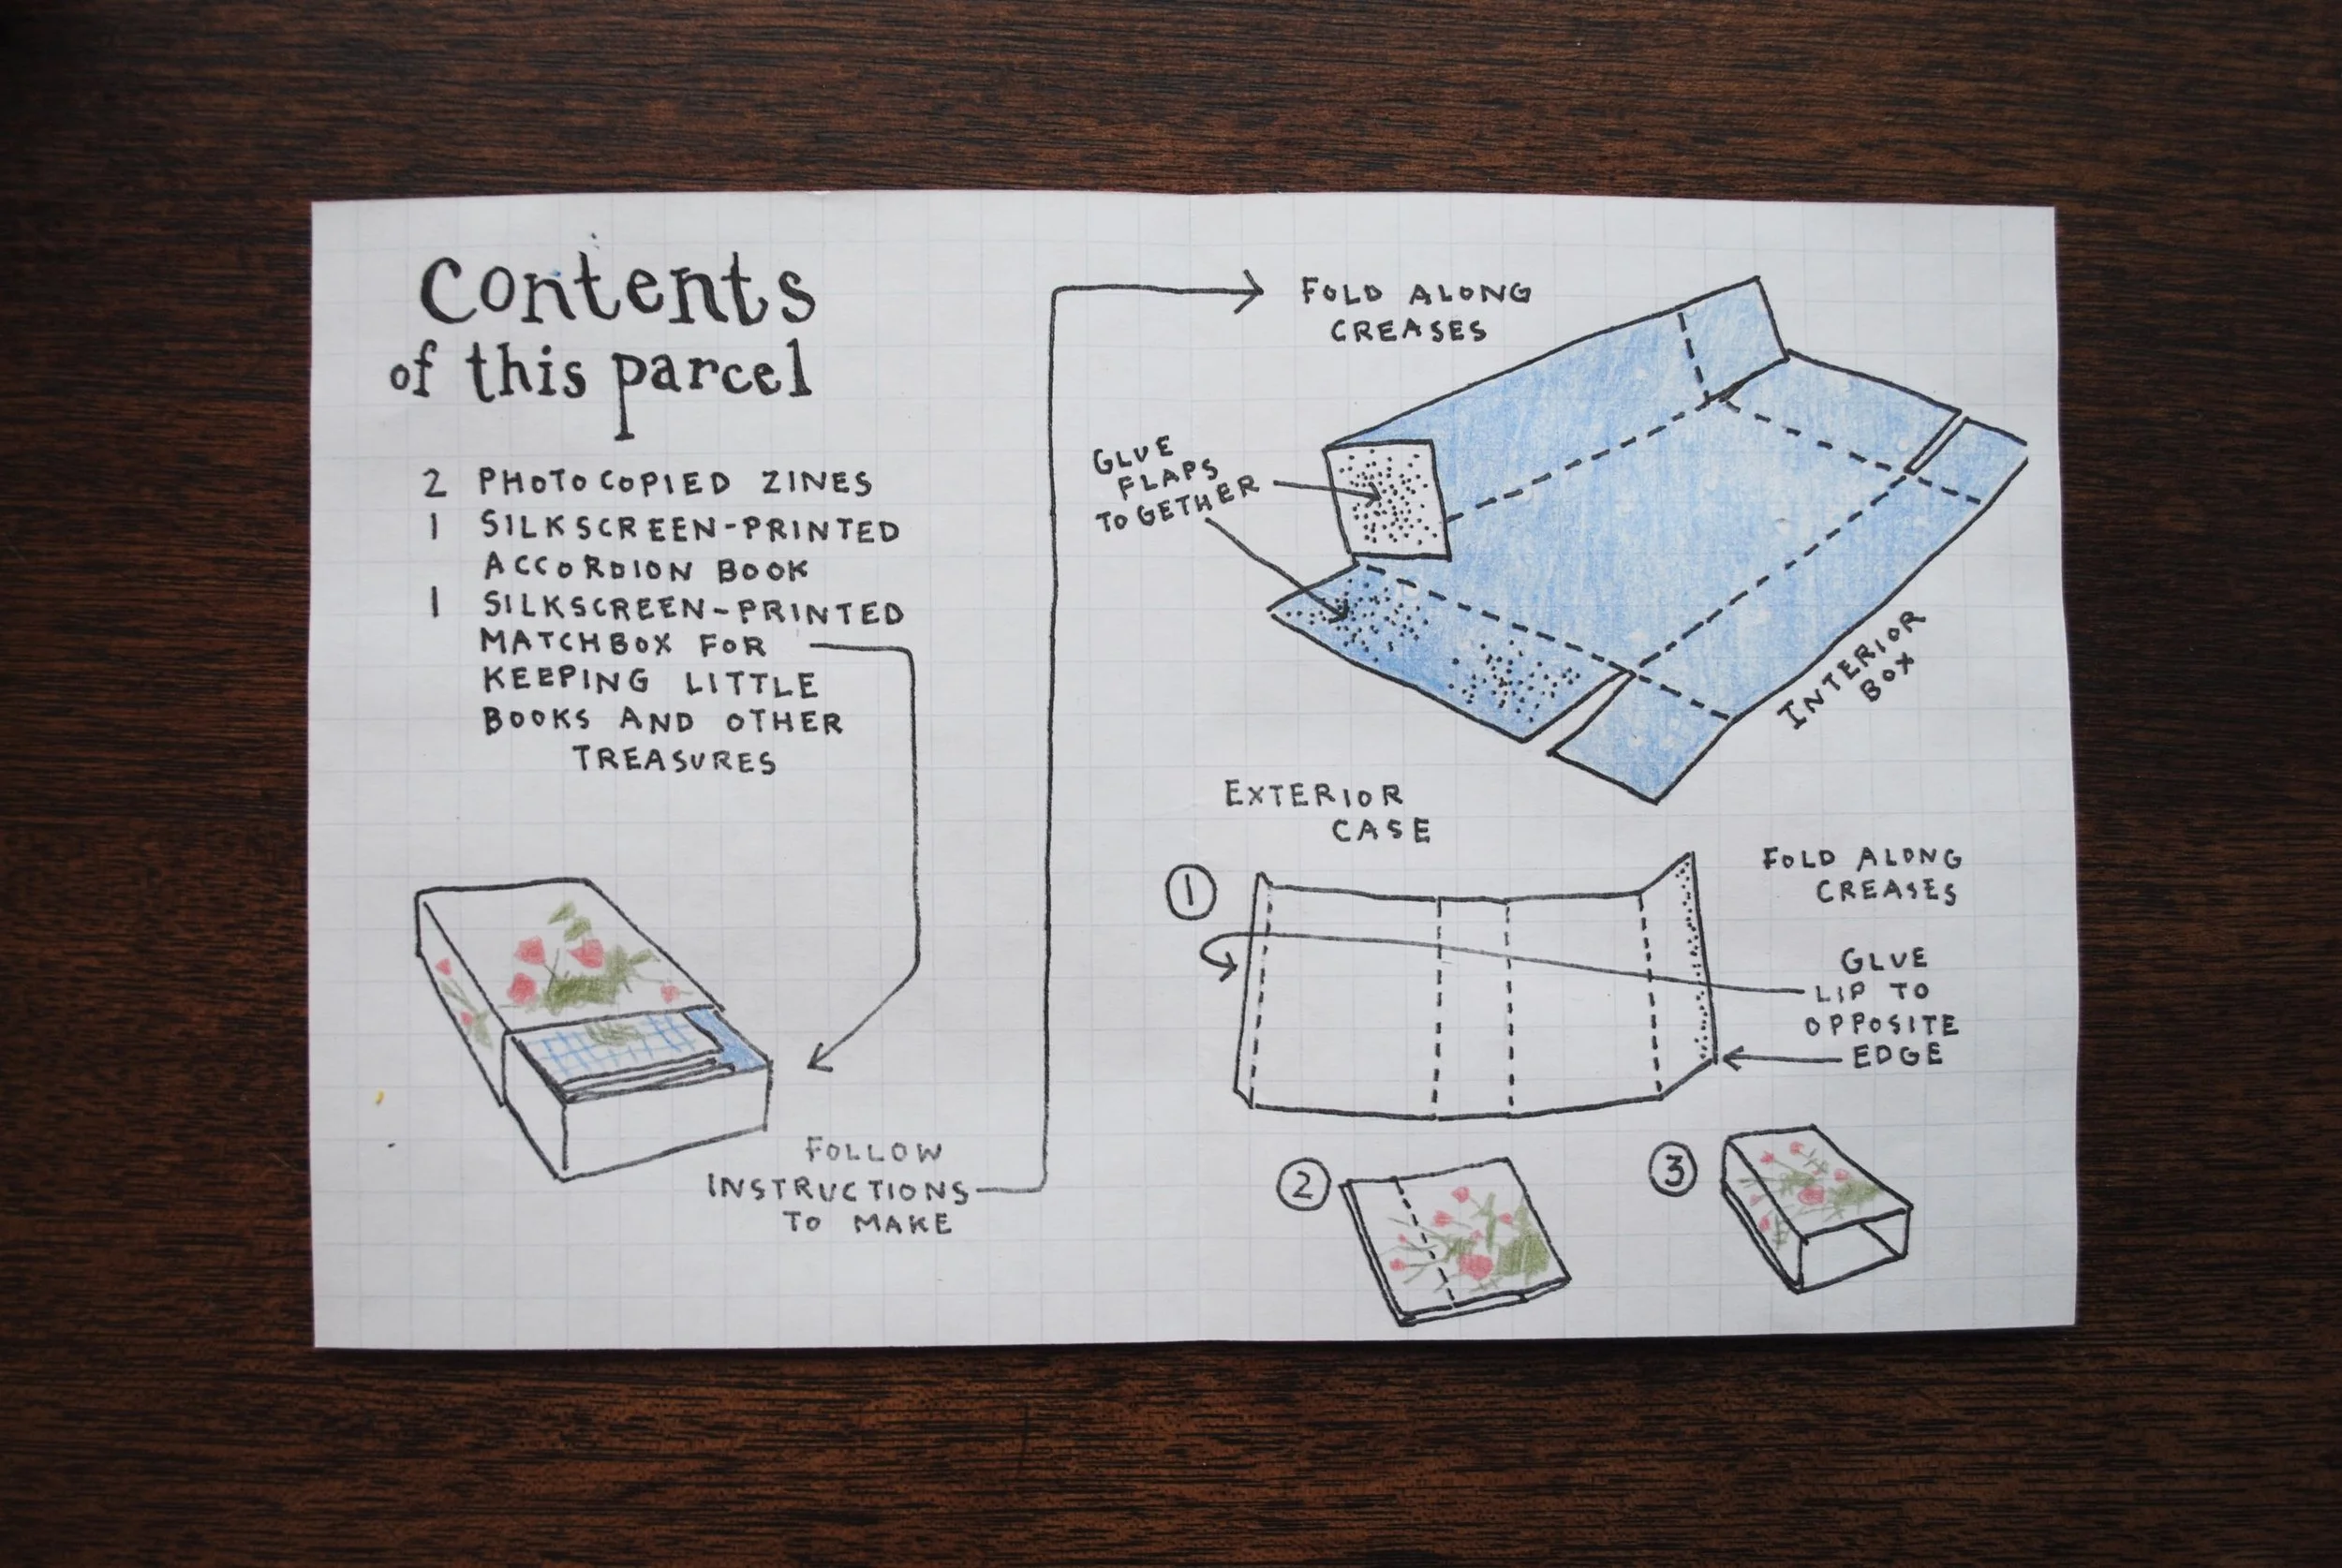 Contents
of this parcel
2 PHOTOCOPIED ZINES
1 SILKSCREEN-PRINTED
ACCORDION BOOK
1 SILKSCREEN-PRINTED
MATCHBOX FOR
KEEPING LITTLE
BOOKS AND OTHER
TREASURES
FOLLOW
INSTRUCTIONS
TO MAKE
FOLD ALONG
CREASES
GLUE
FLAPS
TOGETHER
INTERIOR
BOX
EXTERIOR
CASE
1
FOLD ALONG
CREASES
GLUE
LIP TO
OPPOSITE
EDGE
2
3